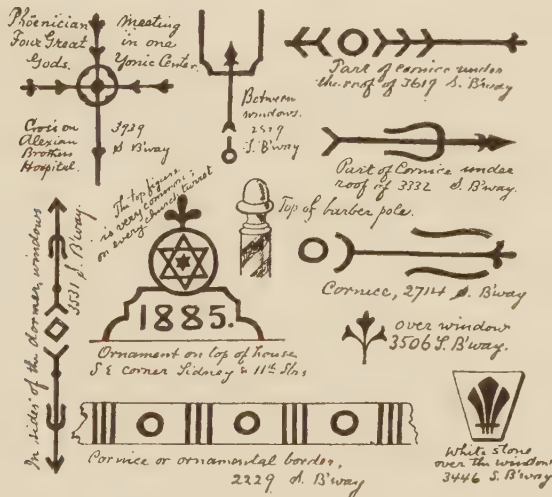 Phoenician
Four Great
Gods.
Meeting
in one
Yonic Center.
Cross on
Alexian
Brothers
Hospital.
3939
S B'way
Between
windows.
2519
S. B'way
Part of cornice under
the roof of 3619 S. B'way
Part of Cornice under
roof of 3332 S. B'way.
The top figure
is very common;
on every church turret
Top of barber pole.
In sides of the dormer windows
3531 S. B'way.
1885.
Ornament on top of house
S E corner Sidney & 11th Sts,
Cornice, 2714 S. B'way
over window
3506 S. B'way.
Cornice or ornamental border,
2229 S. B'way
White stone
over the window
3446 S. B'way